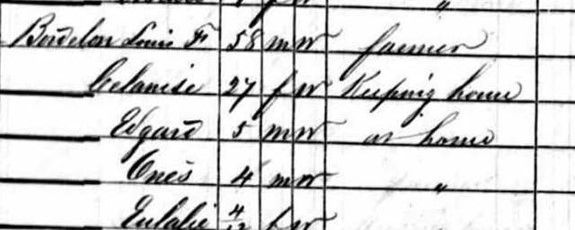 Bordelon Louis F 58 m W farmer
Celanise 27 f W Keeping house
Edgard 5 m W at home
Onés 4 m W "
Eulalie 4/12 f W